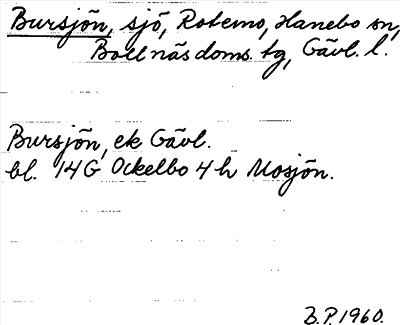 Bursjön, sjö, Rotemo, Hanebo sn,
Bollnäs doms. tg, Gävl. l.
Bursjön, ek Gävl.
bl. 14G Ockelbo 4 h Mosjön.
B.P. 1960.